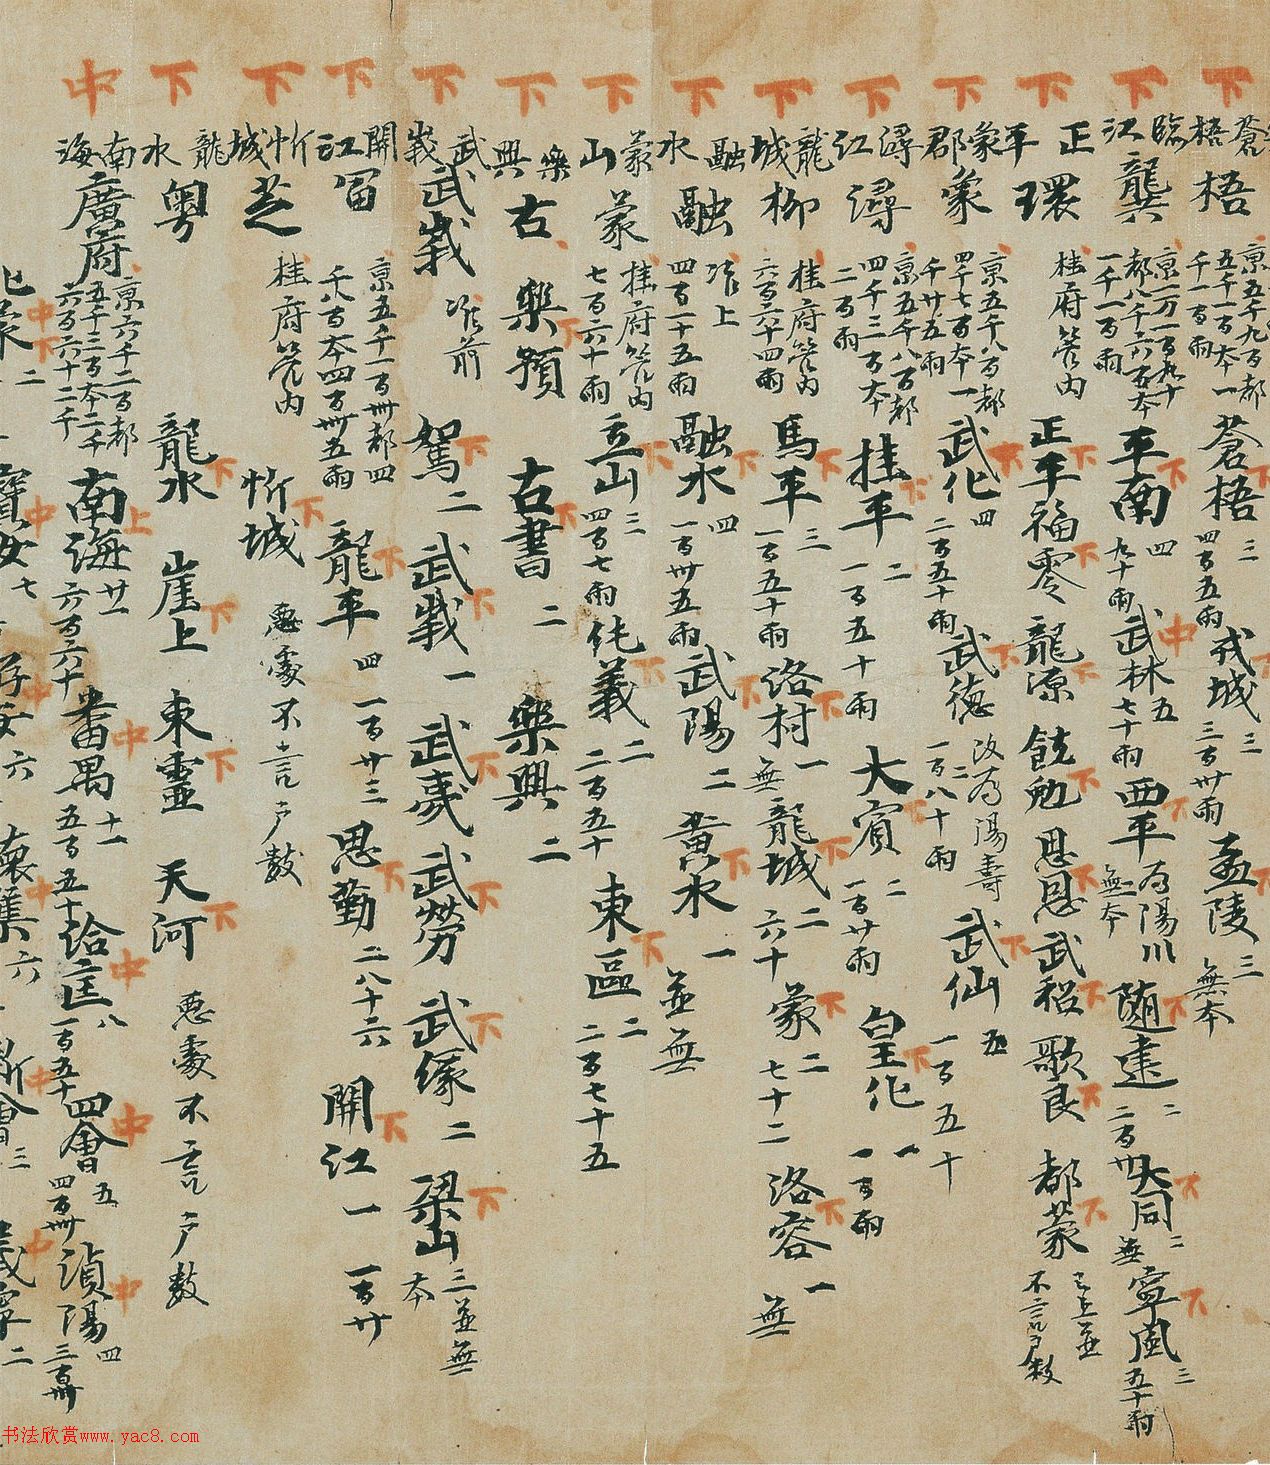 下 蒼梧 梧 京五千九百都五千一百本一千一百兩 蒼梧 下 三 四百五兩 戎城 下 三 三百卅兩 孟陵 下 三 無本
下 臨江 龔 京一万一百九十都八千六百本一千一百兩 平南 下 四 九十兩 武林 中 五 七十兩 西平 下 為陽川 無本 隨建 下 二 二百卅 大同 下 二 無 寧風 下 三 五十兩
下 正平 環 桂府管内 正平 下 福零 下 龍源 下 饒勉 下 思恩 下 武招 下 歌良 下 都蒙 下 已上並不言戶數
下 象郡 象 京五千八百都四千七百本一千廿五兩 武化 下 四 二百五十兩 武德 下 二 改為陽壽 一百八十兩 武仙 下 五 一百五十
下 潯江 潯 京五千八百都四千三百本二百兩 桂平 下 二 一百五十兩 大賓 下 二 一百廿兩 皇化 下 一 一百兩
下 龍城 柳 桂府管内 六百卆四兩 馬平 下 三 一百五十兩 洛村 下 一 無 龍城 下 二 六十 蒙 下 二 七十二 洛容 下 一 無
下 融水 融 准上 四百一十五兩 融水 下 四 一百卅五兩 武陽 下 二 黃水 下 一 並無
下 蒙山 蒙 桂府管内 七百六十兩 立山 下 三 四百七兩 純義 下 二 二百五十 東區 下 二 二百七十五
下 樂興 古 樂預 下 古書 下 二 樂興 二
下 武峩 武峩 准前 駕 下 二 武峩 下 一 武夷 下 武勞 下 武緣 下 二 梁山 下 三並無本
下 開江 冨 京五千一百卅都四千八百本四百卅五兩 龍平 下 四 一百廿三 思勤 下 二 八十六 開江 下 一 一百廿
下 忻城 芝 桂府管内 忻城 下 惡處不言戶數
下 龍水 粵 龍水 下 崖上 下 東璽 下 天河 下 惡處不言戶數
中 南海 廣府 京六千二百都五千二百本二千六百六十二千 南海 上 廿一 六百六十 番禺 中 十一 五百五十 洽洭 中 八 一百五十 四會 中 五 四百卅 湞陽 中 四 三百卅
中 二 中 七 中 六 中 六 中 三 義寧 中 二
书法欣赏www.yac8.com